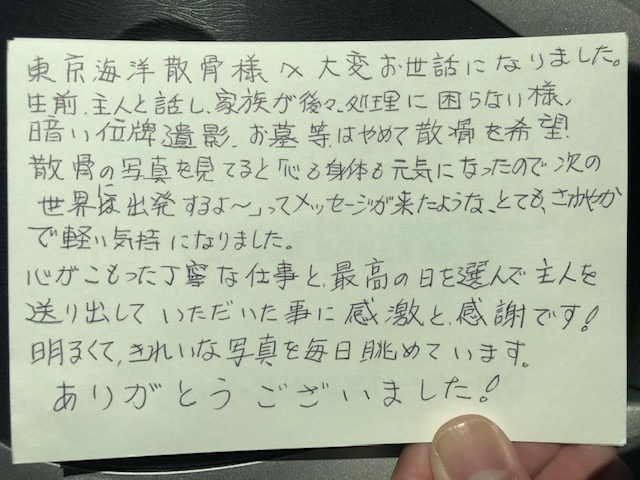 東京海洋散骨様へ大変お世話になりました。
生前、主人と話し、家族が後々、処理に困らない様、
暗い位牌、遺影、お墓等はやめて散骨を希望!
散骨の写真を見てると「心も身体も元気になったので次の
世界に出発するよ～」ってメッセージが来たような、とても、さわやか
で軽い気持になりました。
心がこもった丁寧な仕事と、最高の日を選んで主人を
送り出していただいた事に感激と、感謝です!
明るくて、きれいな写真を毎日眺めています。
ありがとうございました!